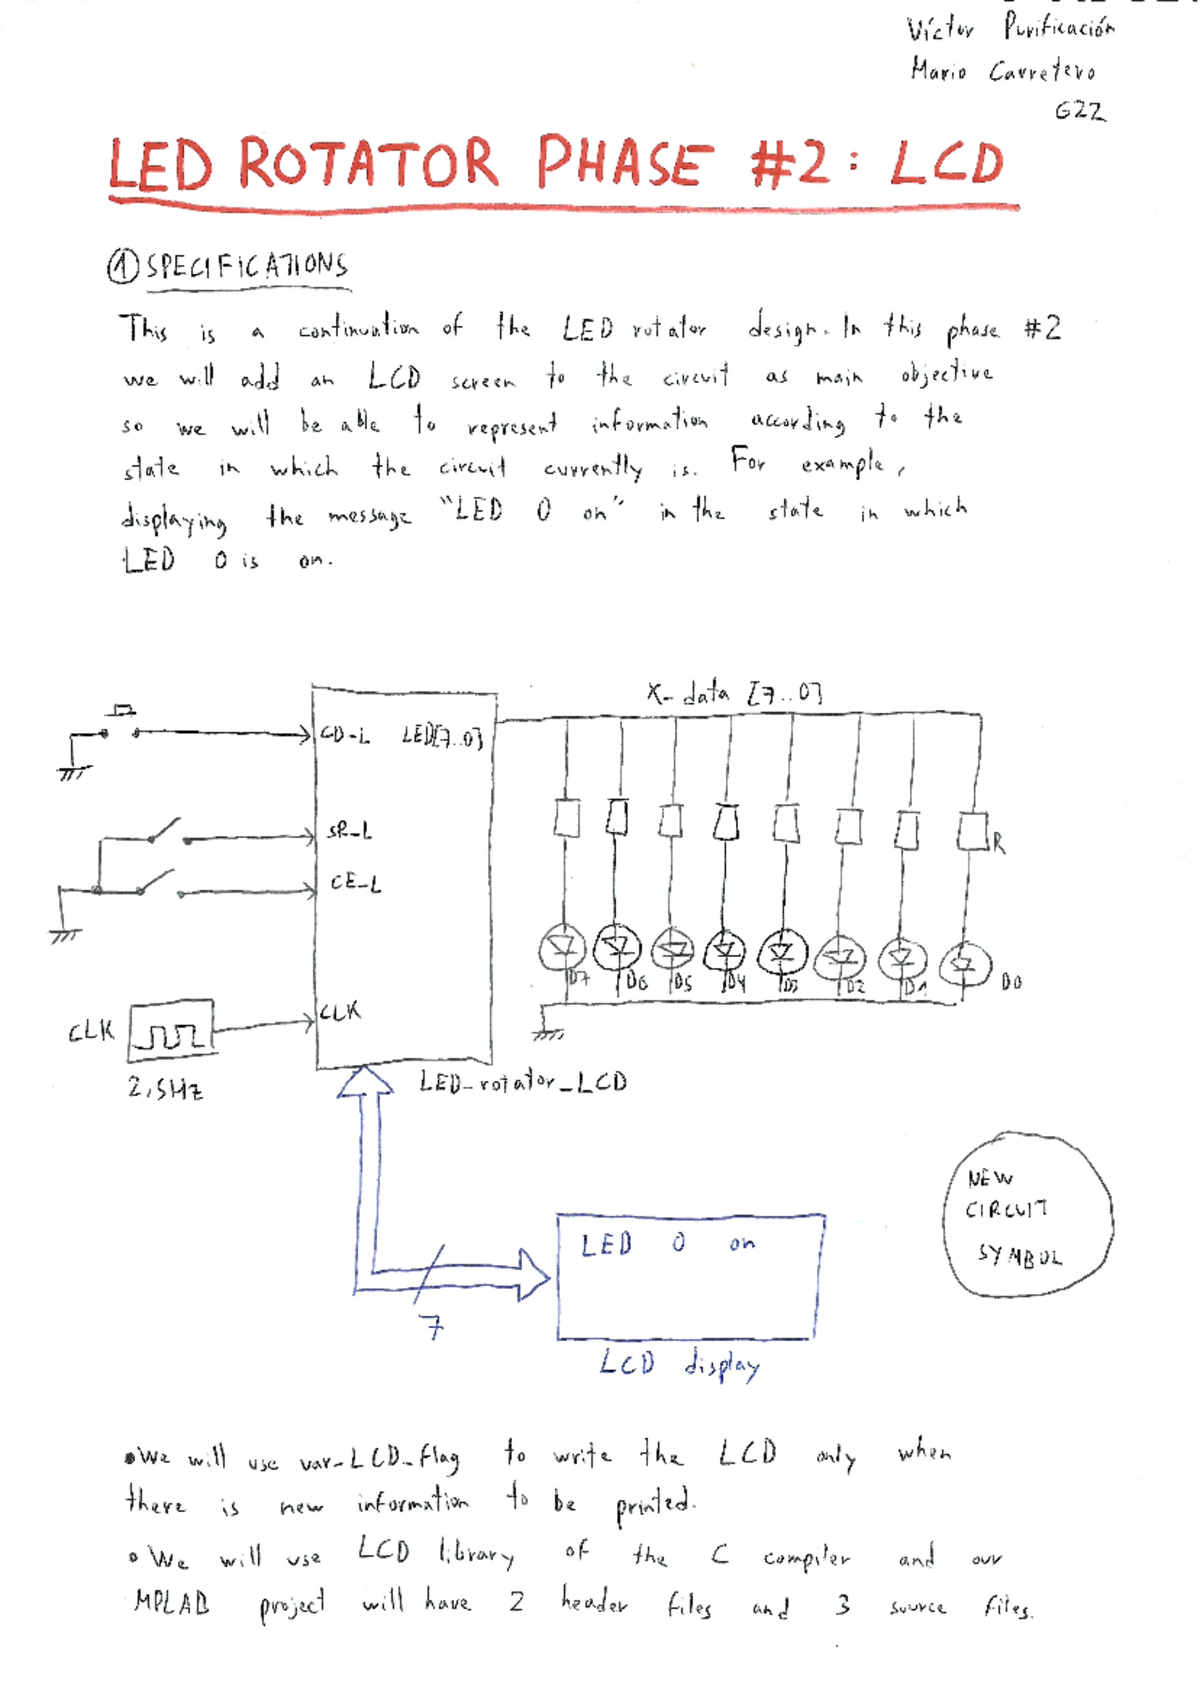 Víctor Purificación
Mario Carretero
G22
LED ROTATOR PHASE #2: LCD
① SPECIFICATIONS
This is a continuation of the LED rotator design. In this phase #2
we will add an LCD screen to the circuit as main objective
so we will be able to represent information according to the
state in which the circuit currently is. For example,
displaying the message "LED 0 on" in the state in which
LED 0 is on.
X-data [7..0]
CD-L LED[7..0]
SR_L
R
CE_L
D7 D6 D5 D4 D3 D2 D1 D0
CLK
CLK
2,5Hz
LED_rotator_LCD
NEW
CIRCUIT
SYMBOL
LED 0 on
7
LCD display
• We will use var_LCD_flag to write the LCD only when
there is new information to be printed.
• We will use LCD library of the C compiler and our
MPLAB project will have 2 header files and 3 source files.